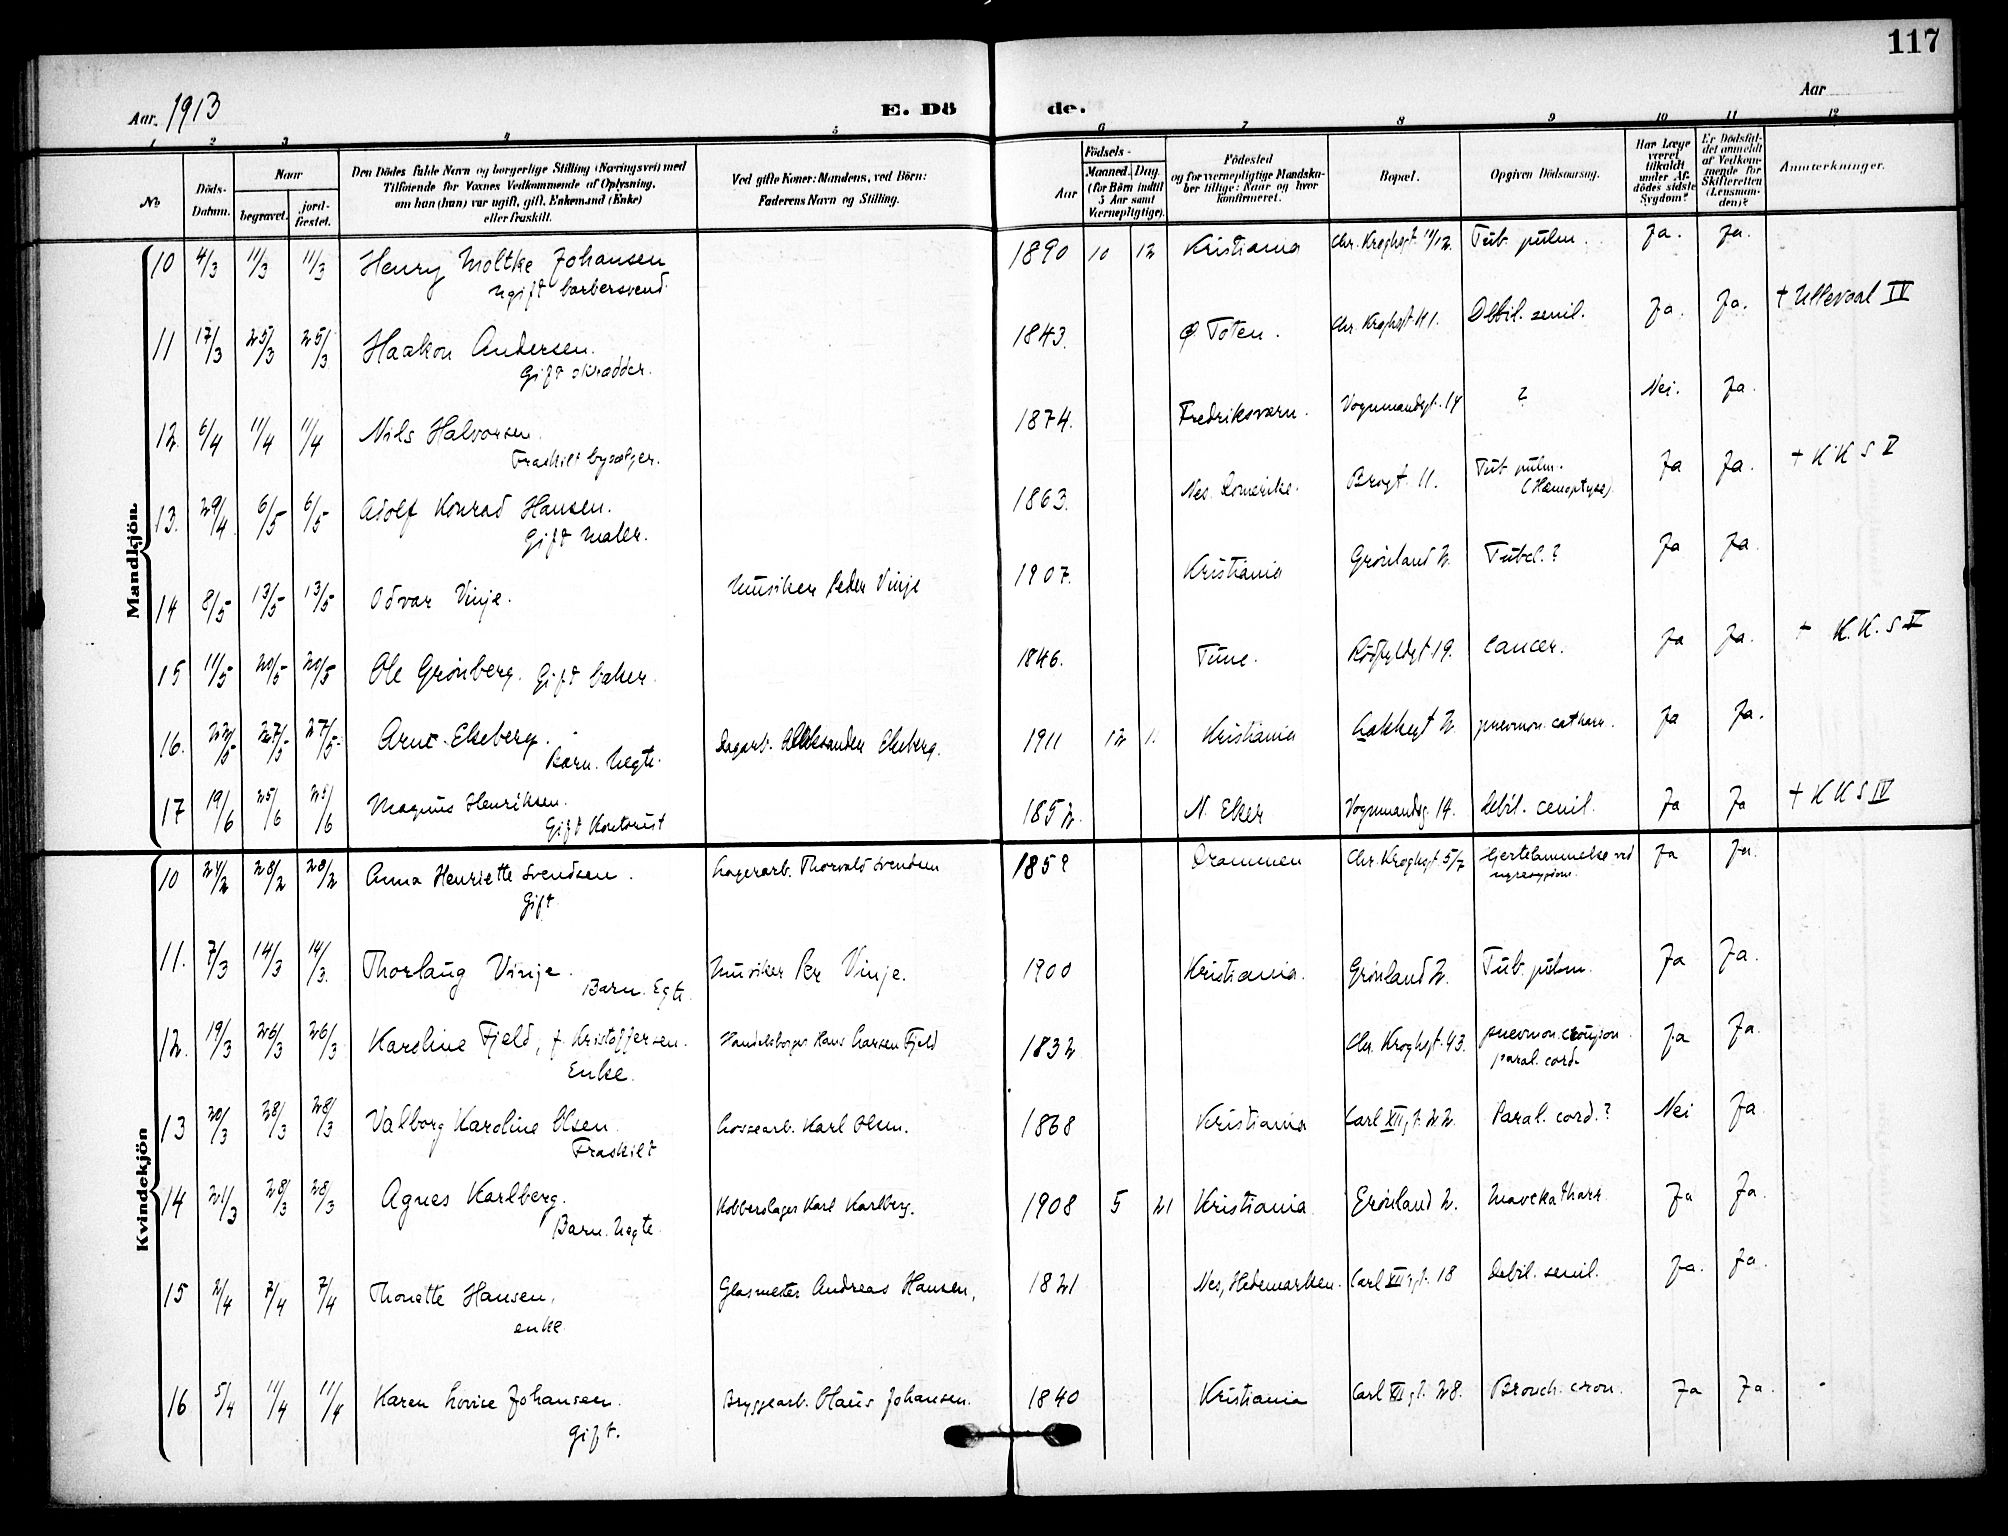 117
Aar. 1913 E. Döde. Aar
1 2 3 4 5 6 7 8 9 10 11 12
No Döds-Datum. Naar begravet. jordfæstet. Den Dödes fulde Navn og borgerlige Stilling (Næringsvei) med Tilföiende for Voxnes Vedkommende af Oplysning, om han (hun) var ugift, gift, Enkemand (Enke) eller fraskilt. Ved gifte Koner: Mandens, ved Börn: Faderens Navn og Stilling. Födsels- Aar Maaned. Dag. (for Börn indtil 5 Aar samt Værnepligtige). Födested og for værnepligtige Mandskaber tillige: Naar og hvor konfirmeret. Bopæl. Opgiven Dödsaarsag. Har Læge været tilkaldt under Afdödes sidste Sygdom? Er Dödsfaldet anmeldt af Vedkommende for Skifteretten (Lensmanden)? Anmærkninger.
Mandkjön
10 4/3 11/3 11/3 Henry Moltke Johansen 1890 10 12 Kristiania Chr. Kroghgt 11/12. Tub. pulm. Ja. Ja.
Ugift barbersvend.
11 17/3 25/3 25/3 Haakon Andersen. 1843. Ø Toten. Chr. Kroghgt 41. Debil. senil. Ja. Ja. + Ullevaal IV
Gift skrædder.
12. 6/4 11/4 11/4 Nils Halvorsen. 1874. Fredriksværn. Vognmandsgt. 14 ? Nei. Ja.
Fraskilt bysælger.
13. 29/4 6/5 6/5 Adolf Konrad Hansen. 1863. Nes. Romerike. Brogt. 11. Tub. pulm. (Hæmoptyse). Ja Ja. + K K S V
Gift maler.
14 8/5 13/5 13/5 Odvar Vinje. Musiker Peder Vinje 1907. Kristiania Grønland 2. Tubcl.? Ja Ja.
15 11/5 20/5 20/5 Ole Grønberg. Gift baker. 1846. Tune. Rødfyldgt 19. Cancer. Ja Ja. + K. K. S V
16. 22/5 27/5 27/5 Arne Ekeberg. Dagarb. Aleksander Ekeberg. 1911 12 1. Kristiania Lakkegt 2. pneumon. catharr. Ja Ja.
Barn. Uegte.
17 19/6 25/6 25/6 Magnus Henriksen. 1852. N. Eker Vognmandsg. 14. debil. cenil. Ja Ja + K K S IV
Gift Kontorist
Kvindekjön
10 24/2 28/2 28/2 Anna Henriette Svendsen. Lagerarb. Thorvald Svendsen 185? Drammen Chr. Kroghgt 5/7 Hjertelammelse ved Ja Ja.
Gift.
11. 7/3 14/3 14/3. Thorlaug Vinje. Musiker Per Vinje. 1900 Kristiania. Grønland 2. Tub. pulm. Ja Ja.
Barn. Egte.
12. 19/3 26/3 26/3 Karoline Fjeld, f. Kristoffersen. Handelsborger Hans Larsen Fjeld 1832 Chr. Kroghgt. 43. pneumon. croupon. paral. cord. Ja Ja.
Enke.
13 20/3 28/3 28/3 Valborg Karoline Olsen. Lossearb. Karl Olsen. 1868 Kristiania Carl XII gt. 22. Paral. cord.? Nei Ja.
Fraskilt
14 21/3 28/3 28/3 Agnes Karlberg. Kobberslager Karl Karlberg. 1908 5 21 Kristiania Grønland 2. Mavekatharr Ja Ja.
Barn. Uegte.
15 2/4 7/4 7/4 Thonette Hansen, Glasmester Andreas Hansen, 1821 Nes, Hedemarken. Carl XII gt. 18 debil. senil. Ja. Ja.
enke
16 5/4 11/4 11/4 Karen Lovise Johansen. Bryggearb. Olaus Johansen. 1840 Kristiania Carl XII gt. 28. Bronch. cron. Ja Ja.
gift.